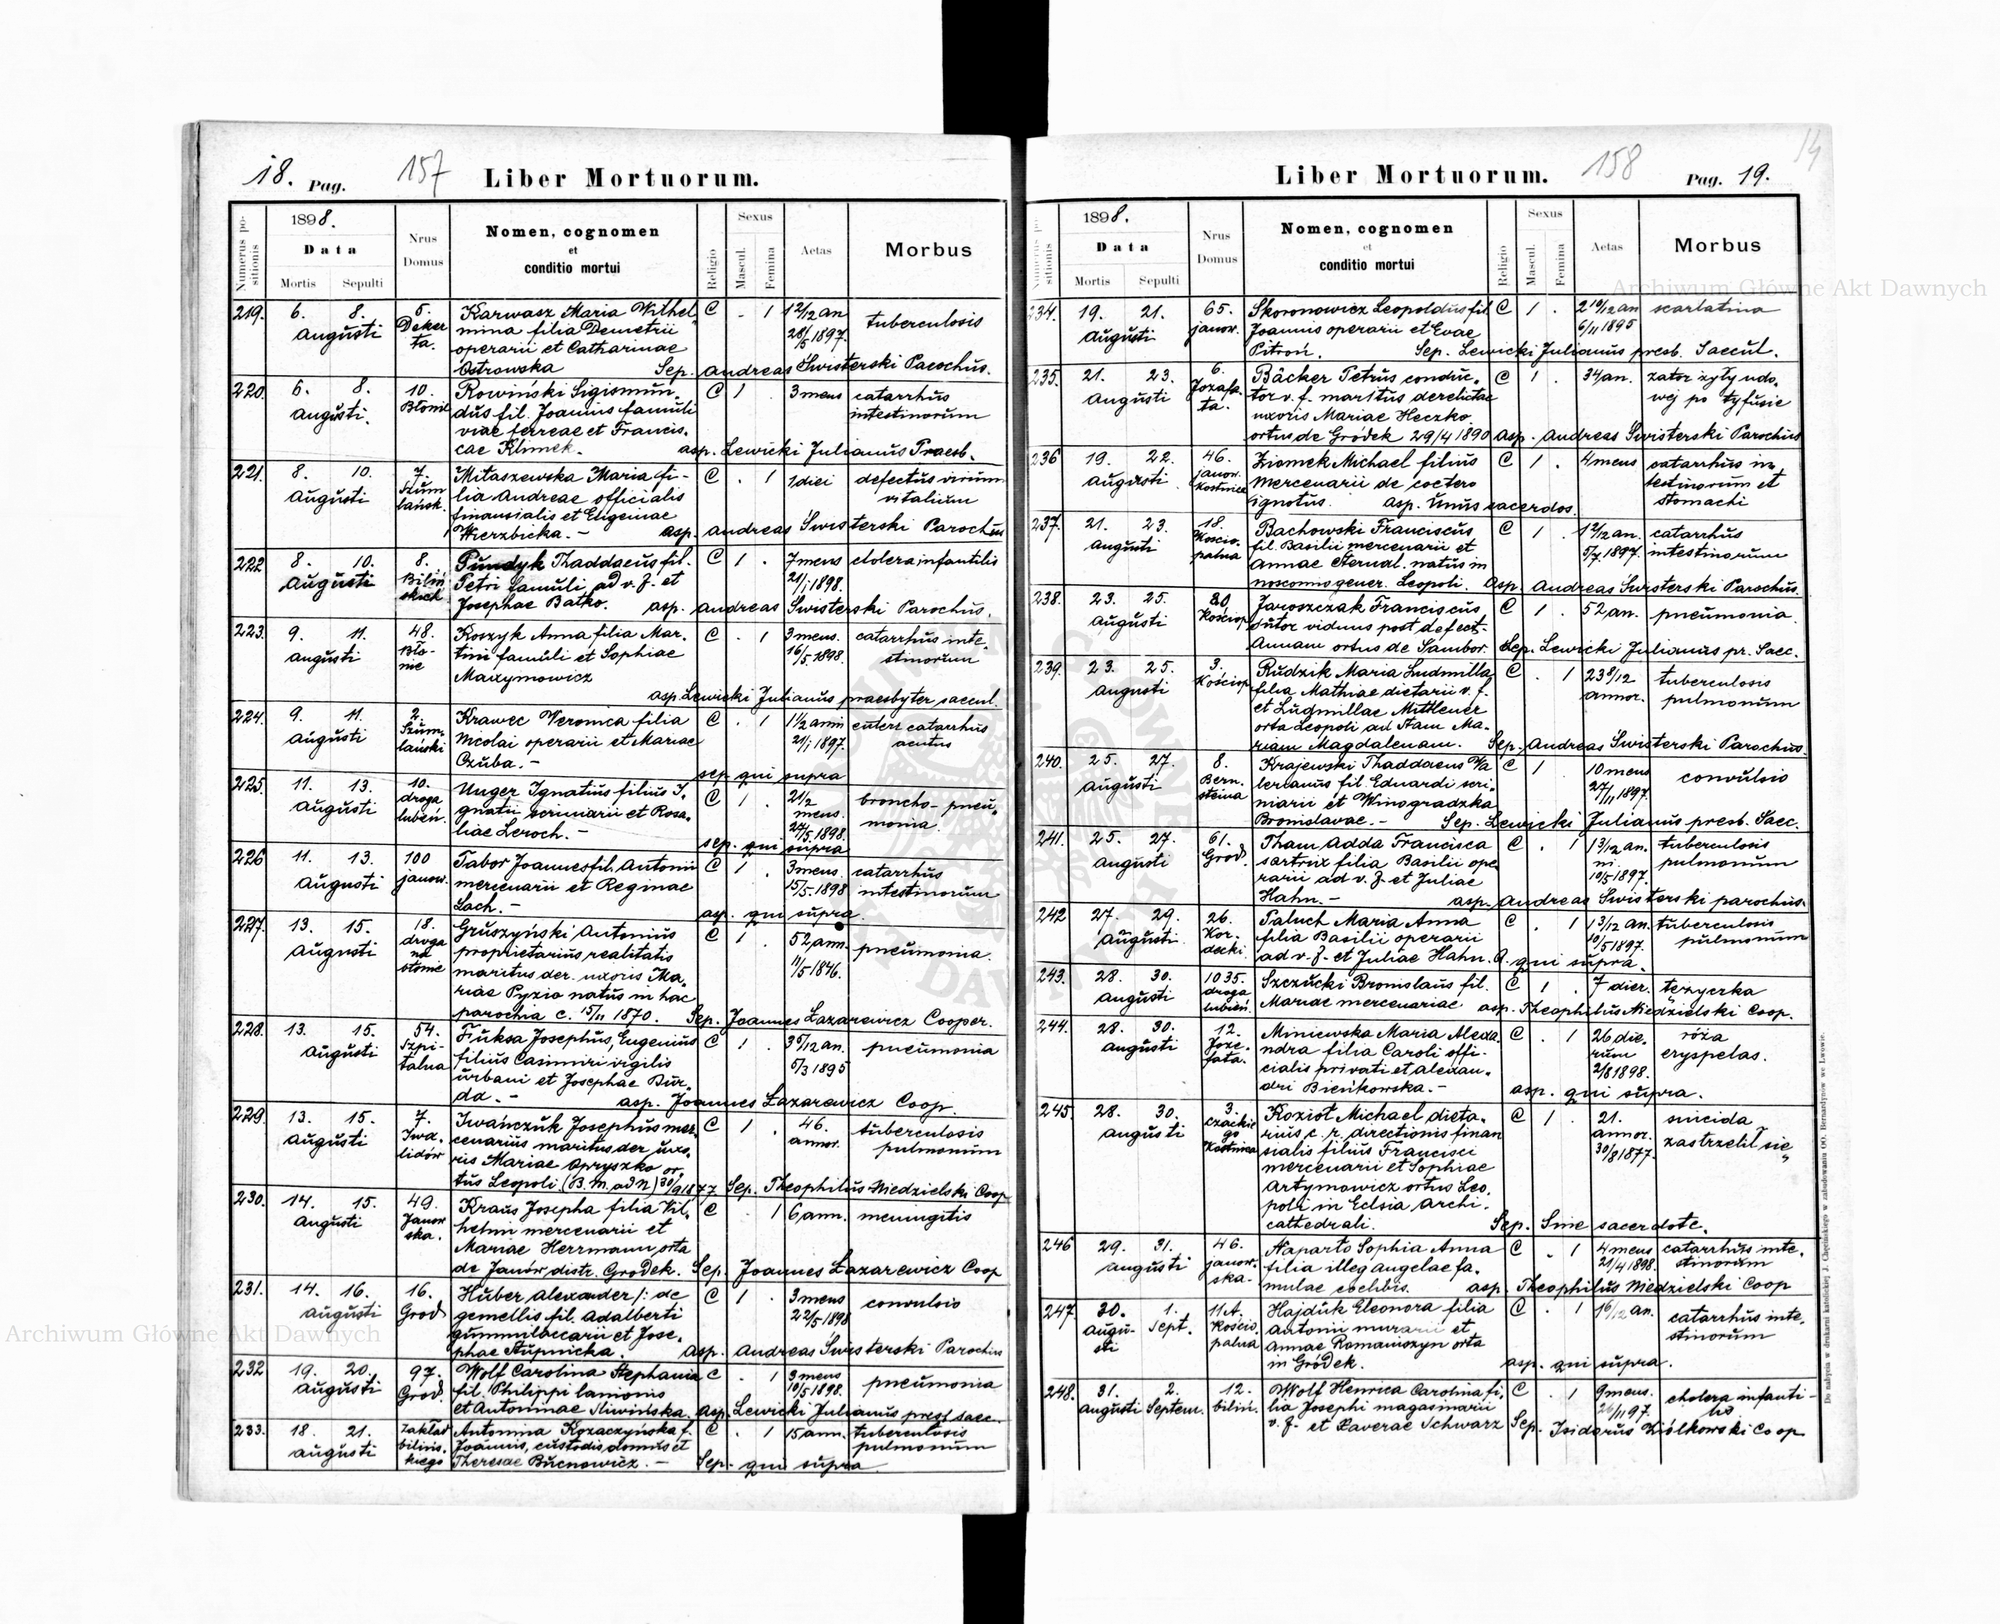 18. Pag. 157 Liber Mortuorum.
Numerus positionis
1898.
Data
Mortis Sepulti
Nrus Domus
Nomen, cognomen
et
conditio mortui
Religio
Sexus
Mascul. Femina
Aetas
Morbus
219. 6. 8. 5. Karwasz Maria Wilhel- C . 1 1 2/12 an tuberculosis
Augusti Deker mina filia Demetrii 28/5 1897.
ta. operarii et Catharinae
Ostrowska Sep. Andreas Swisterski Parochus.
220. 6. 8. 10. Rowiński Sigismun- C 1 . 3 mens catarrhus
Augusti. Błonie dus fil. Joannis famuli intestinorum
viae ferreae et Francis-
cae Klimek. asp. Lewicki Julianus Praesb.
221. 8. 10. 7. Mitaszewska Maria fi- C . 1 1 diei defectus virium
Augusti Szum lia Andreae officialis vitalium
lańsk. finansialis et Eugeniae
Wierzbicka. - asp. Andreas Swisterski Parochus
222 8. 10. 8. Pundyk Thaddaeus fil. C 1 . 7 mens cholera infantilis
Augusti Biliń Petri famuli ad v. f. et 21/1 1898.
skich Josephae Batko. asp. Andreas Swisterski Parochus.
223. 9. 11. 48. Koszyk Anna filia Mar- C . 1 3 mens. catarrhus inte-
Augusti Bło- tini famuli et Sophiae 16/5 1898. stinorum
nie Maxymowicz
asp. Lewicki Julianus praesbyter saecul.
224. 9. 11. 2. Krawec Veronica filia C . 1 1 1/2 ann catarrhus
Augusti Szum- Nicolai operarii et Mariae 21/1 1897. acutus
lański Czuba. -
sep. qui supra
225. 11. 13. 10. Unger Ignatius filius I- C 1 . 2 1/2 broncho-pneu-
Augusti droga gnatii scriniarii et Rosa- mens. monia.
lubień. liae Leroch. - 27/5 1898.
sep. qui supra
226 11. 13. 100 Tabor Joannes fil. Antonii C 1 . 3 mens. catarrhus
Augusti janow. mercenarii et Reginae 15/5 1898 intestinorum
Lach. -
asp. qui supra.
227. 13. 15. 18. Gruszyński Antonius C 1 . 52 ann. pneumonia.
Augusti droga proprietarius realitatis 11/5 1846.
na maritus der. uxoris Ma-
błonie riae Pyzio natus in hac
parochia c. 15/11 1870. Sep. Joannes Łazarewicz Cooper.
228. 13. 15. 54. Fuksa Josephus, Eugenius C 1 . 3 5/12 an. pneumonia
Augusti Szpi- filius Casimiri vigilis 5/3 1895
talna urbani et Josephae Bur-
da. - asp. Joannes Łazarewicz Coop.
229 13. 15. 7. Iwańczuk Josephus mer- C 1 . 46. tuberculosis
Augusti Inwa- cenarius maritus der. uxo- annor. pulmonum
lidów ris Mariae Opryszko or-
tus Leopoli (B. M. ad N) 30/9 1877 Sep. Theophilus Niedzielski Coop
230. 14. 15. 49. Kraus Josepha filia Vil- C . 1 6 ann. meningitis
Augusti Janow helmi mercenarii et
ska. Mariae Herrmann, orta
de Janów distr. Gródek. Sep. Joannes Łazarewicz Coop
231. 14. 16. 16. Huber Alexander /: de C 1 . 3 mens convulsio
Augusti Grod gemellis fil. Adalberti 22/5 1898
gummilbecarii et Jose-
phae Stupnicka. asp. Andreas Swisterski Parochus
232 19. 20. 97. Wolf Carolina Stephania C . 1 3 mens pneumonia
Augusti Grod. fil. Philippi lanionis 10/5 1898.
et Antoninae Śliwińska. asp. Lewicki Julianus presb saec.
233. 18. 21. Zakład Antonina Kozaczyńska f. C . 1 15 ann. tuberculosis
Augusti biliń- Joannis, custodis domus et pulmonum
skiego Theresae Bucnowicz. - Sep. qui supra.
Liber Mortuorum. 158 Pag. 19.
14
Numerus positionis
1898.
Data
Mortis Sepulti
Nrus Domus
Nomen, cognomen
et
conditio mortui
Religio
Sexus
Mascul. Femina
Aetas
Morbus
234. 19. 21. 65. Skoronowicz Leopoldus fil C 1 . 2 10/12 an scarlatina
Augusti janow. Joannis operarii et Evae 6/11 1895
Pitroń. Sep. Lewicki Julianus presb. Saecul.
235. 21. 23. 6. Bäcker Petrus conduc- C 1 . 34 an. zator żyły udo-
Augusti Jozafa- tor v. f. maritus derelictae wej po tyfusie
ta. uxoris Mariae Heczko.
ortus de Gródek 29/4 1890 asp. Andreas Swisterski Parochus
236 19. 22. 46. Ziomek Michael filius C 1 . 4 mens catarrhus in
Augusti janow. mercenarii de coetero testinorum et
Kostnica ignotus. asp. Unus sacerdos. stomachi
237. 21. 23. 18. Bachowski Franciscus C 1 . 1 2/12 an. catarrhus
Augusti Kościo- fil. Basilii mercenarii et 5/7 1897. intestinorum
palna Annae Eternal. natus in
noscomio gener. Leopoli. Asp. Andreas Swisterski Parochus.
238. 23. 25. 20. Jaroszczak Franciscus, C 1 . 52 an. pneumonia.
Augusti Kościop. sutor viduus post defect.
Annam ortus de Sambor. Sep. Lewicki Julianus pr. Saec.
239. 23. 25. 3. Rudzik Maria Ludmilla C . 1 23 9/12 tuberculosis
Augusti Kościop. filia Mathiae dietarii v. f. annor. pulmonum
et Ludmillae Mittleuer
orta Leopoli ad Stam Ma-
riam Magdalenam. Sep. Andreas Swisterski Parochus.
240. 25. 27. 8. Krajewski Thaddaeus Va C 1 . 10 mens convulsio
Augusti Bern- lerianus fil. Eduardi scri- 27/11 1897.
steina niarii et Winogradzka
Bronislavae. - Sep. Lewicki Julianus presb. Saec.
241. 25. 27. 61. Tham Adda Francisca C . 1 1 3/12 an. tuberculosis
Augusti Grod. sartrix filia Basilii ope ni. pulmonum
rarii ad v. f. et Juliae 10/5 1897.
Hahn. - asp. Andreas Swisterski parochus.
242 27. 29. 26. Paluch Maria Anna C . 1 1 3/12 an. tuberculosis
Augusti. Kor- filia Basilii operarii 10/5 1897. pulmonum
decki. ad v. f. et Juliae Hahn. A. qui supra.
243. 28. 30. 1035. Szczucki Bronislaus fil. C 1 . 7 dier. tężyczka
Augusti droga Mariae mercenariae asp. Theophilus Niedzielski Coop.
lubień.
244. 28. 30. 12. Miniewska Maria Alexa- C . 1 26 die- róża
Augusti Joze- ndra filia Caroli offi- rum eryspelas.
fata. cialis privati et Alexan- 2/8 1898.
dri Bieńkowska. - asp. qui supra.
245. 28. 30. 3. Kozioł Michael dieta- C 1 . 21. suicida
Augusti czackie rius c. r. directionis finan annor. zastrzelił się"
go sialis filius Francisci 30/8 1877.
Kostnica mercenarii et Sophiae
Artymowicz ortus Leo-
poli in Eclsia Archi-
cathedrali. Sep. Sine sacerdote.
246 29. 31. 46. Naparto Sophia Anna C . 1 4 mens catarrhus inte-
Augusti janow- filia illeg Angelae fa- 21/4 1898. stinorum
ska- mulae coelibis. asp. Theophilus Niedzielski Coop
247. 30. 1. 11A. Hajduk Eleonora filia C . 1 1 6/12 an. catarrhus inte-
Augu- Sept. Kościo- Antonii murarii et stinorum
sti palna Annae Romaniszyn orta
in Gródek. asp. qui supra.
248. 31. 2. 12. Wolf Henrica Carolina fi- C . 1 9 mens. cholera infanti-
Augusti Septem. biliń. lia Josephi magasinarii 26/11 97. lis
v. f. et Xaverae Schwarz Sep. Isidorus Ziółkowski Coop
Do nabycia w drukarni katolickiej J. Chęcińskiego w zabudowaniu OO. Bernardynow we Lwowie.
Archiwum Główne Akt Dawnych
Archiwum Główne Akt Dawnych